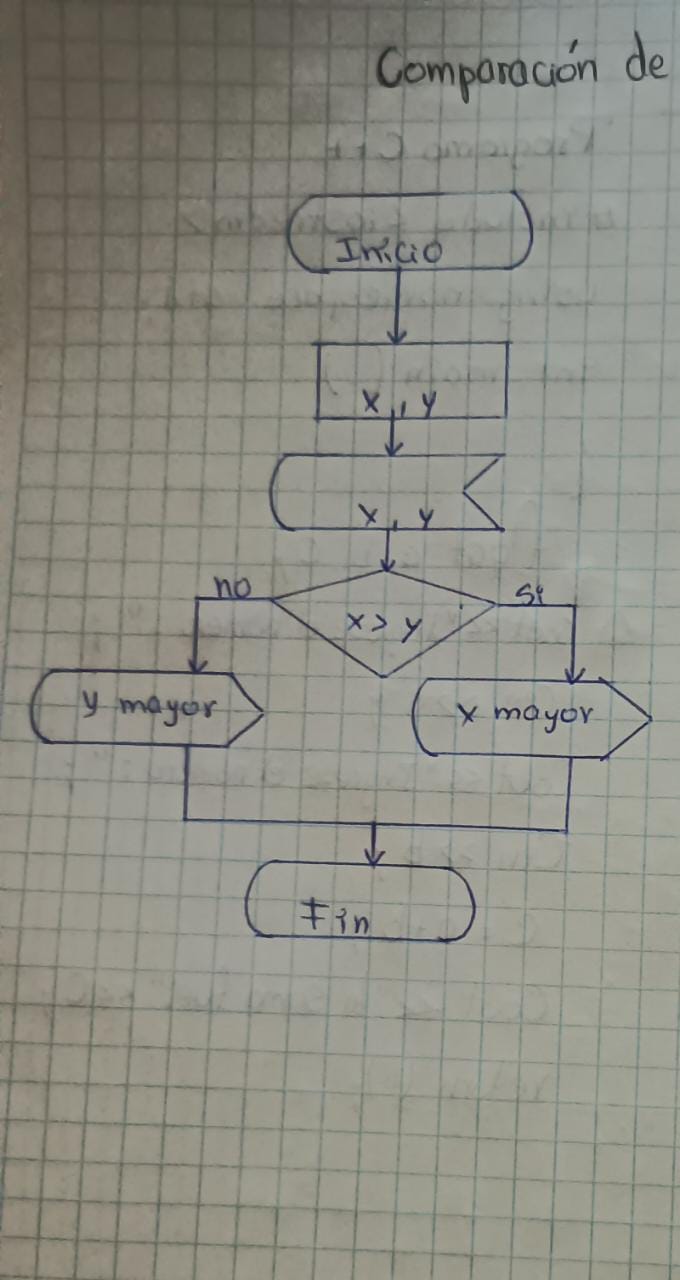 Comparación de
Inicio
x, y
x, y
no
Si
x > y
y mayor
x mayor
Fin